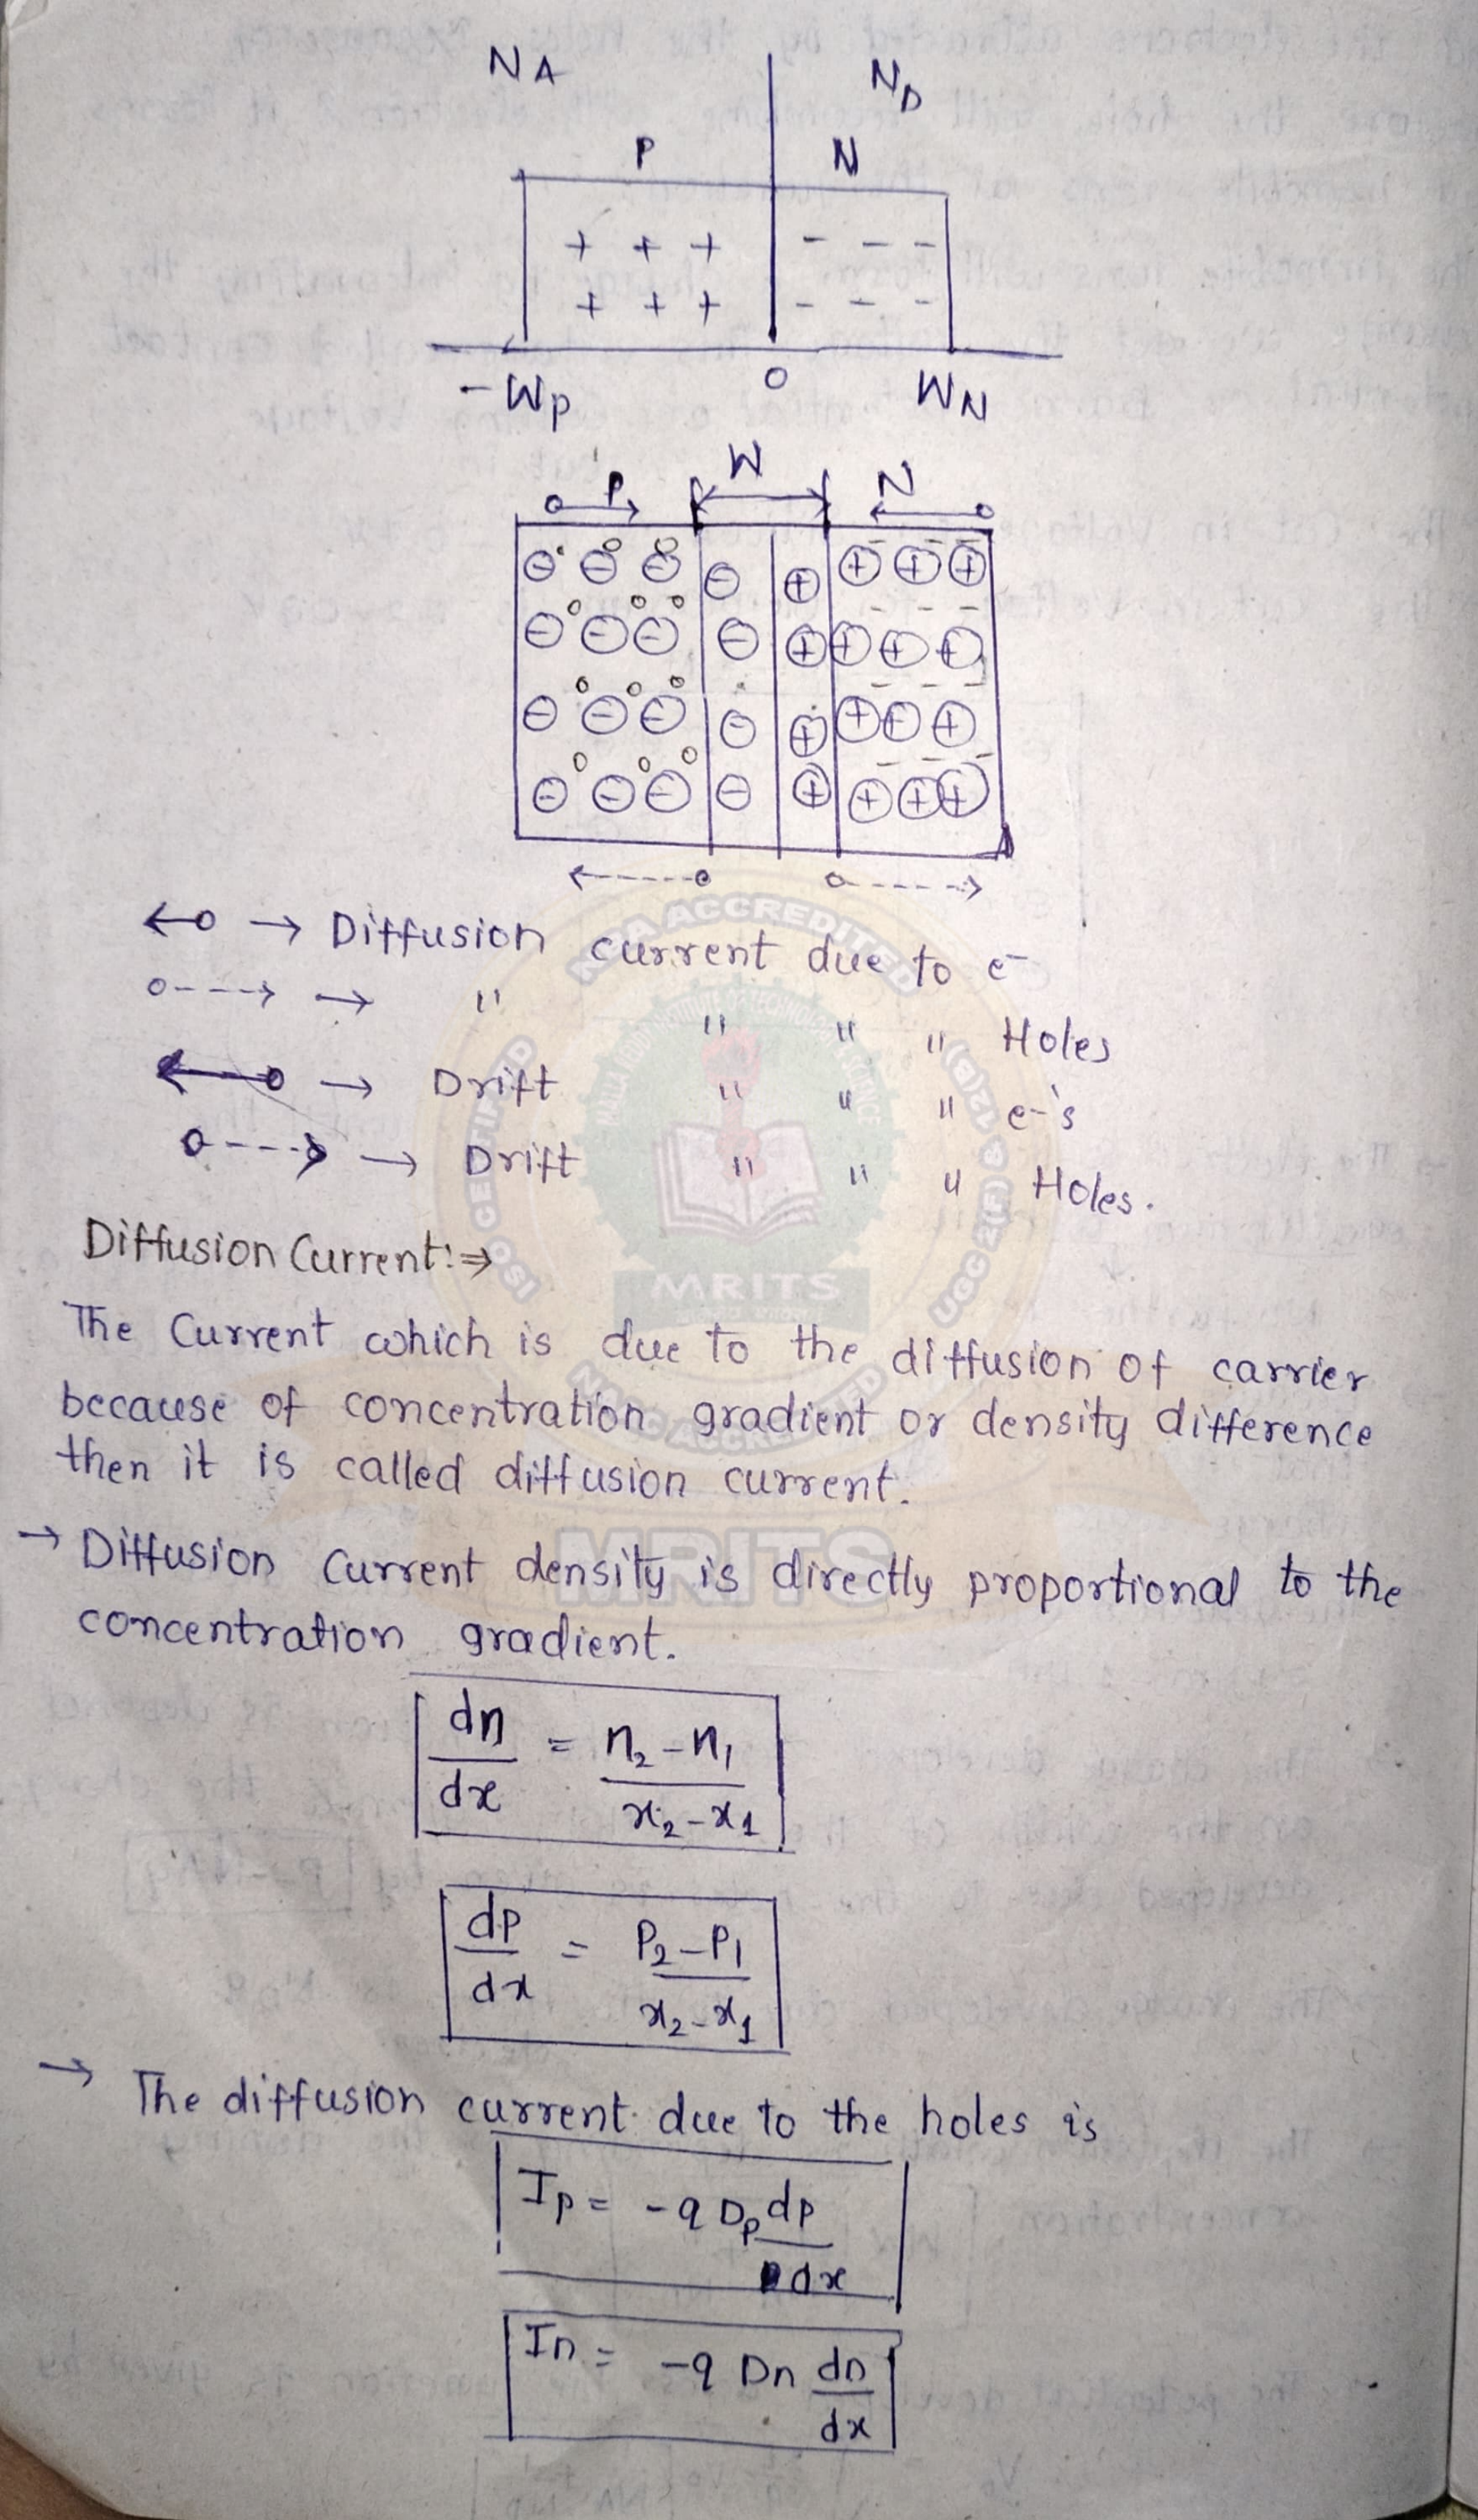 NA
ND
P
N
+ + + - - -
+ + + - - -
-Wp 0 WN
P W N
→ Diffusion current due to e-
→ " " " " Holes
→ Drift " " " e-'s
→ Drift " " " Holes.
Diffusion Current:⇒
The Current which is due to the diffusion of carrier
because of concentration gradient or density difference
then it is called diffusion current.
→ Diffusion Current density is directly proportional to the
concentration gradient.
dn/dx = n2-n1/x2-x1
dp/dx = P2-P1/x2-x1
→ The diffusion current due to the holes is
Ip = -q Dp dp/dx
In = -q Dn dn/dx
NBA ACCREDITED
MRITS
MRITS